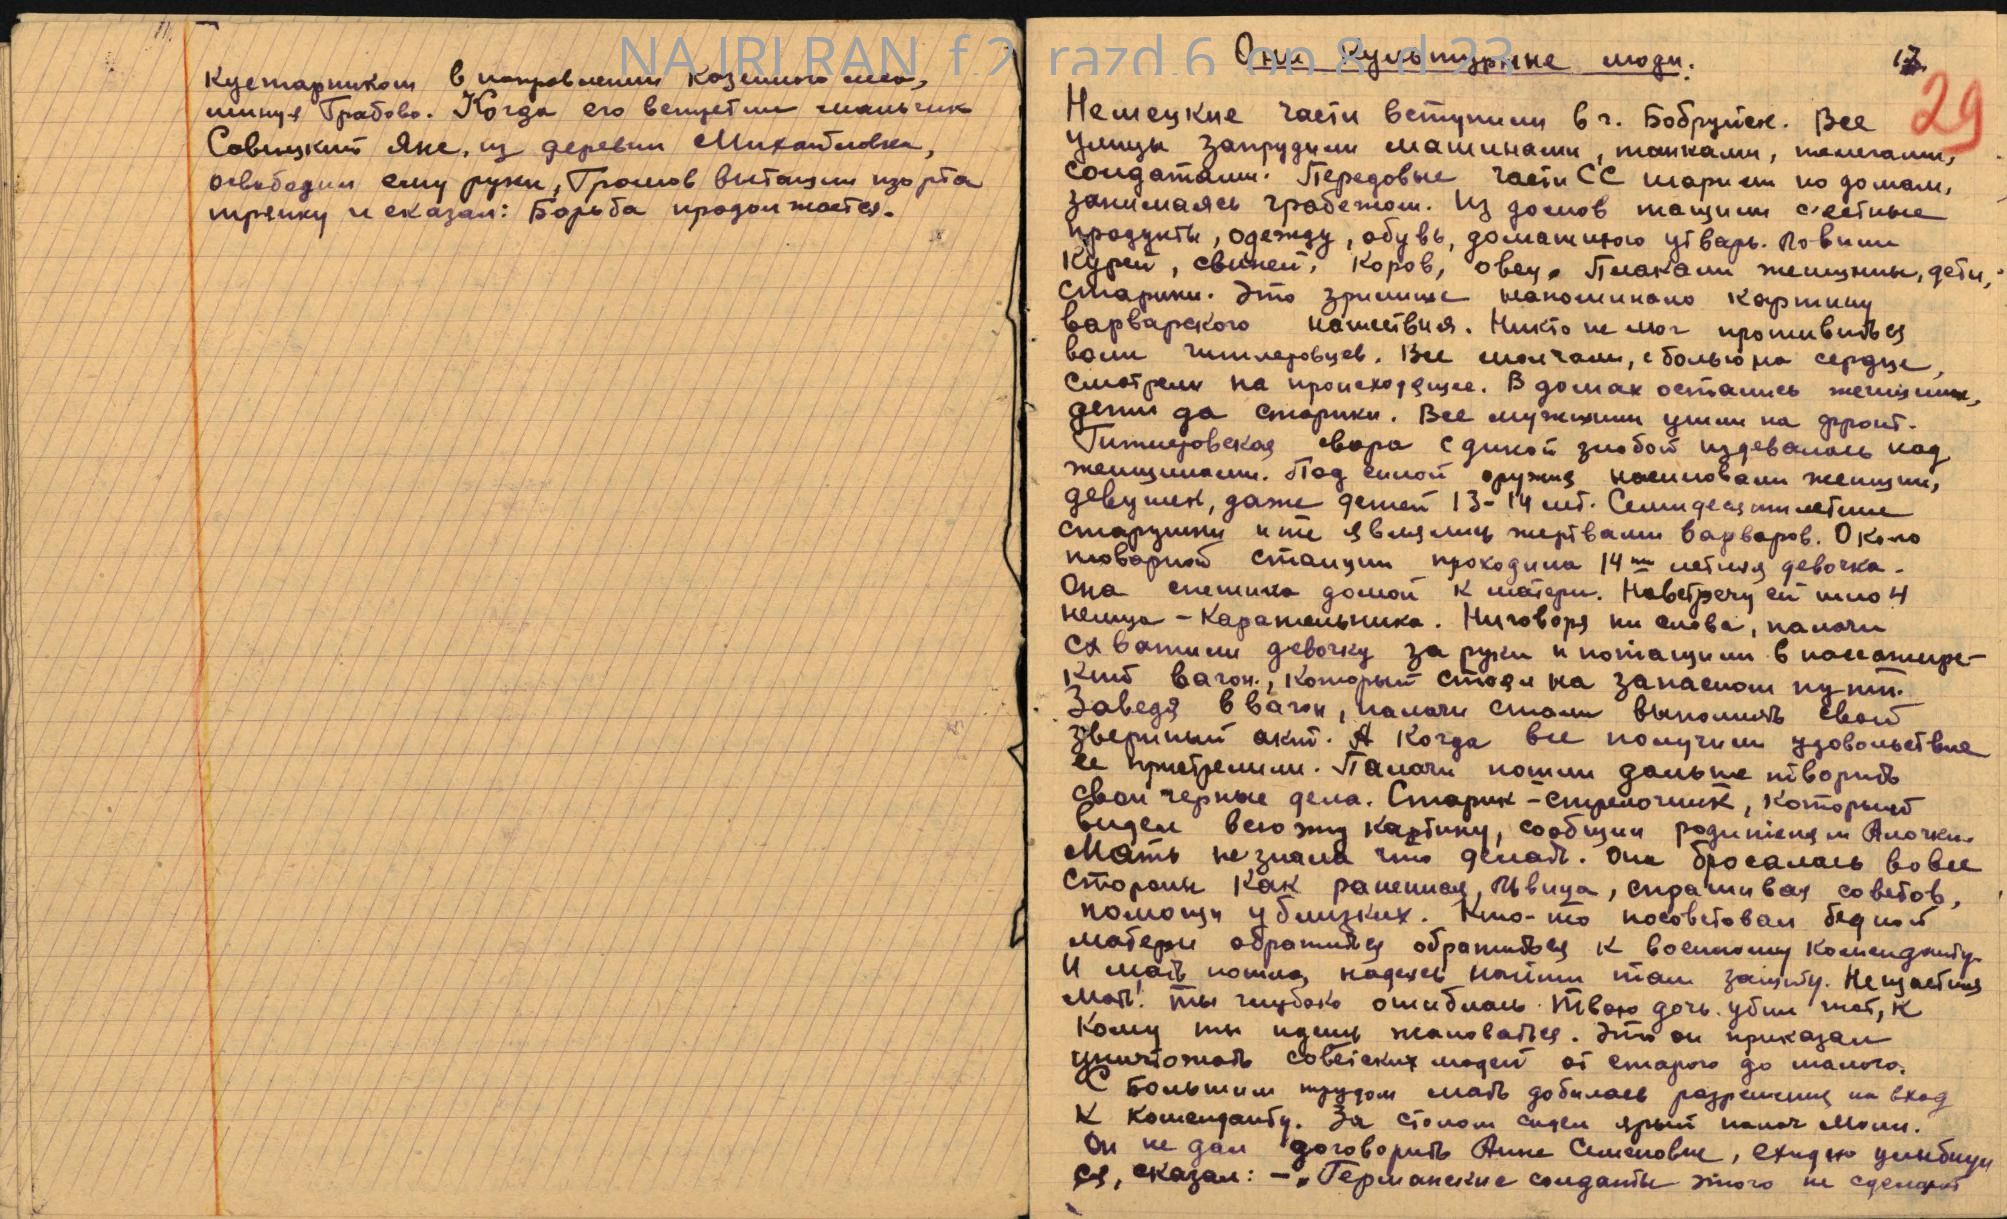 NA IRI RAN f.2 razd.6 op.8 d.23
кустарником в направлении Козенного леса,
минуя Грабово. Когда его встретил мальчик
Савицкий Яне, из деревни Михайловка,
освободил ему руки, Громов вытащил изо рта
тряпку и сказал: Борьба продолжается.
Они культурные люди.
17.
29
Немецкие части вступили в г. Бобруйск. Все
улицы запрудили машинами, танками, телегами,
солдатами. Передовые части СС шарили по домам,
занимаясь грабежом. Из домов тащили съестные
продукты, одежду, обувь, домашнюю утварь. Ловили
курей, свиней, коров, овец. Плакали женщины, дети,
старики. Это зрелище напоминало картину
варварского нашествия. Никто не мог противиться
воли гитлеровцев. Все молчали, с болью на сердце,
смотрели на происходящее. В домах остались женщины,
дети да старики. Все мужчины ушли на фронт.
Гитлеровская свора с дикой злобой издевалась над
женщинами. Под силой оружия насиловали женщин,
девушек, даже детей 13-14 лет. Семидесятилетние
старушки и те являлись жертвами варваров. Около
товарной станции проходила 14ти летняя девочка.
Она спешила домой к матери. Навстречу ей шло 4
немца - карательника. Ни говоря ни слова, палачи
схватили девочку за руки и потащили в пассажирс-
кий вагон, который стоял на запасном пути.
Заведя в вагон, палачи стали выполнять свой
звериный акт. А когда все получили удовольствие
ее пристрелили. Палачи пошли дальше творить
свои черные дела. Старик - стрелочник, который
видел всю эту картину, сообщил родителям Алочки.
Мать не знала что делать. Она бросалась во все
стороны как раненная львица, спрашивая советов,
помощи у близких. Кто-то посоветовал бедной
матери обратиться обратиться к военному коменданту.
И мать пошла, надеясь найти там защиту. Нещастная
мать! Ты глубоко ошиблась. Твою дочь убил тот, к
кому ты идешь жаловаться. Это он приказал
уничтожать советских людей от старого до малого.
С большим трудом мать добилась разрешения на вход
к коменданту. За столом сидел ярый палач Молл.
Он не дал договорить Анне Семеновне, ехидно улыбнув
ся, сказал: - „Германские солдаты этого не сделают